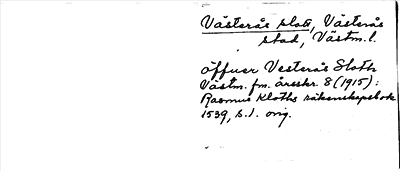 Västerås slott, Västerås
stad, Västm. l.
offuer Vesterås Sloth
Västm. fm. årsskr. 8 (1915):
Rasmus Kloths räkenskapsbok
1539, s. 1. orig.